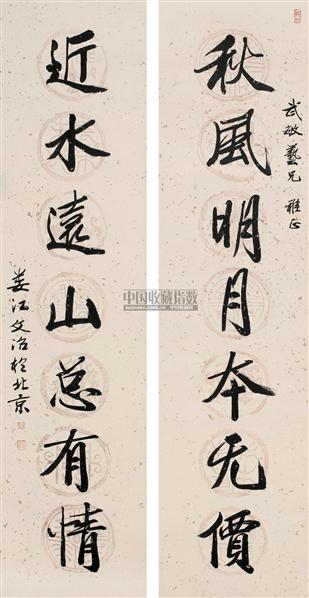 武敏藝兄 雅正
秋風明月本无價
近水遠山总有情
娄江文治於北京
中国收藏指数